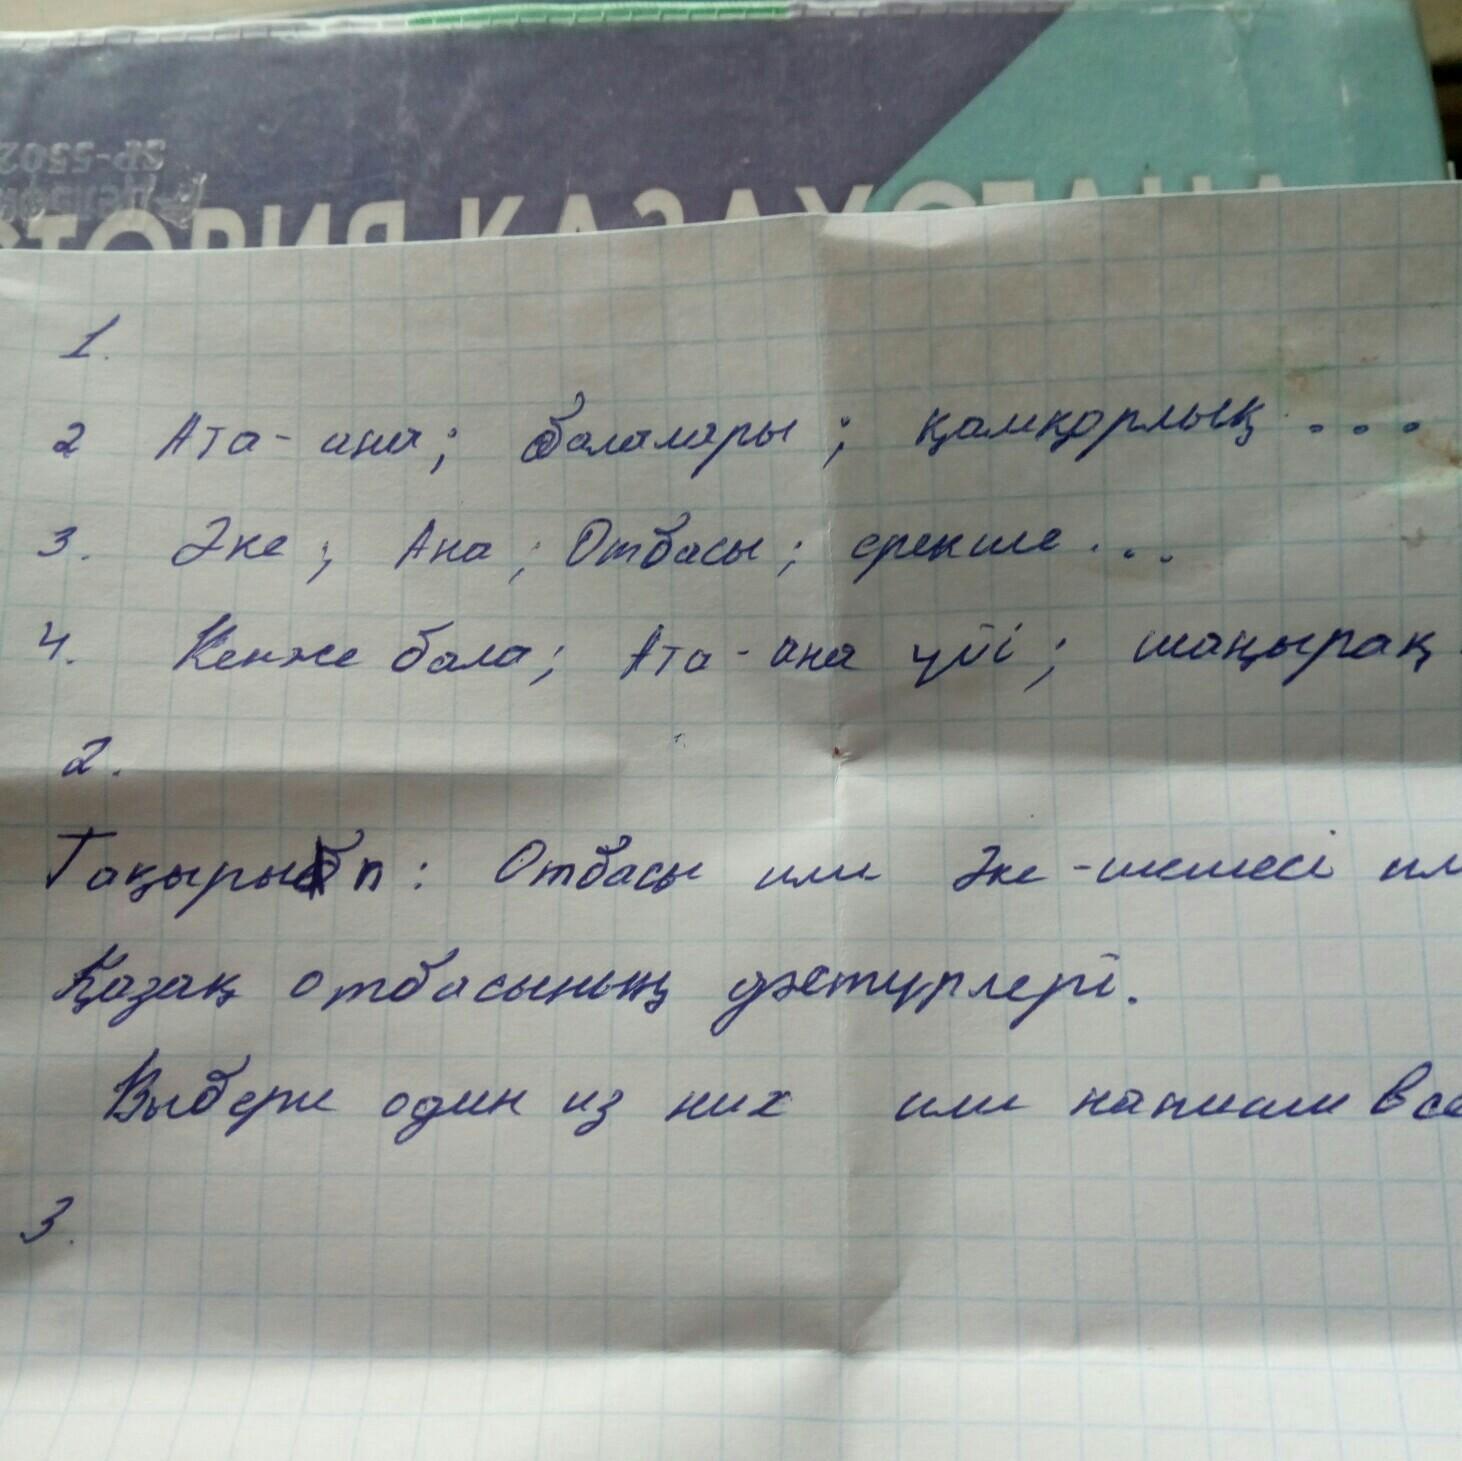 SP-5502
ИСТОРИЯ КАЗАХСТАНА
1.
2 Ата-ана; балалары; қамқорлық...
3. Әке; Ана; Отбасы; ерекше...
4. Кенже бала; Ата-ана үйі; шаңырақ
2.
Тақырып: Отбасы или Әке-шешесі ил
Қазақ отбасының дәстүрлері.
Выбери один из них или напиши все
3.